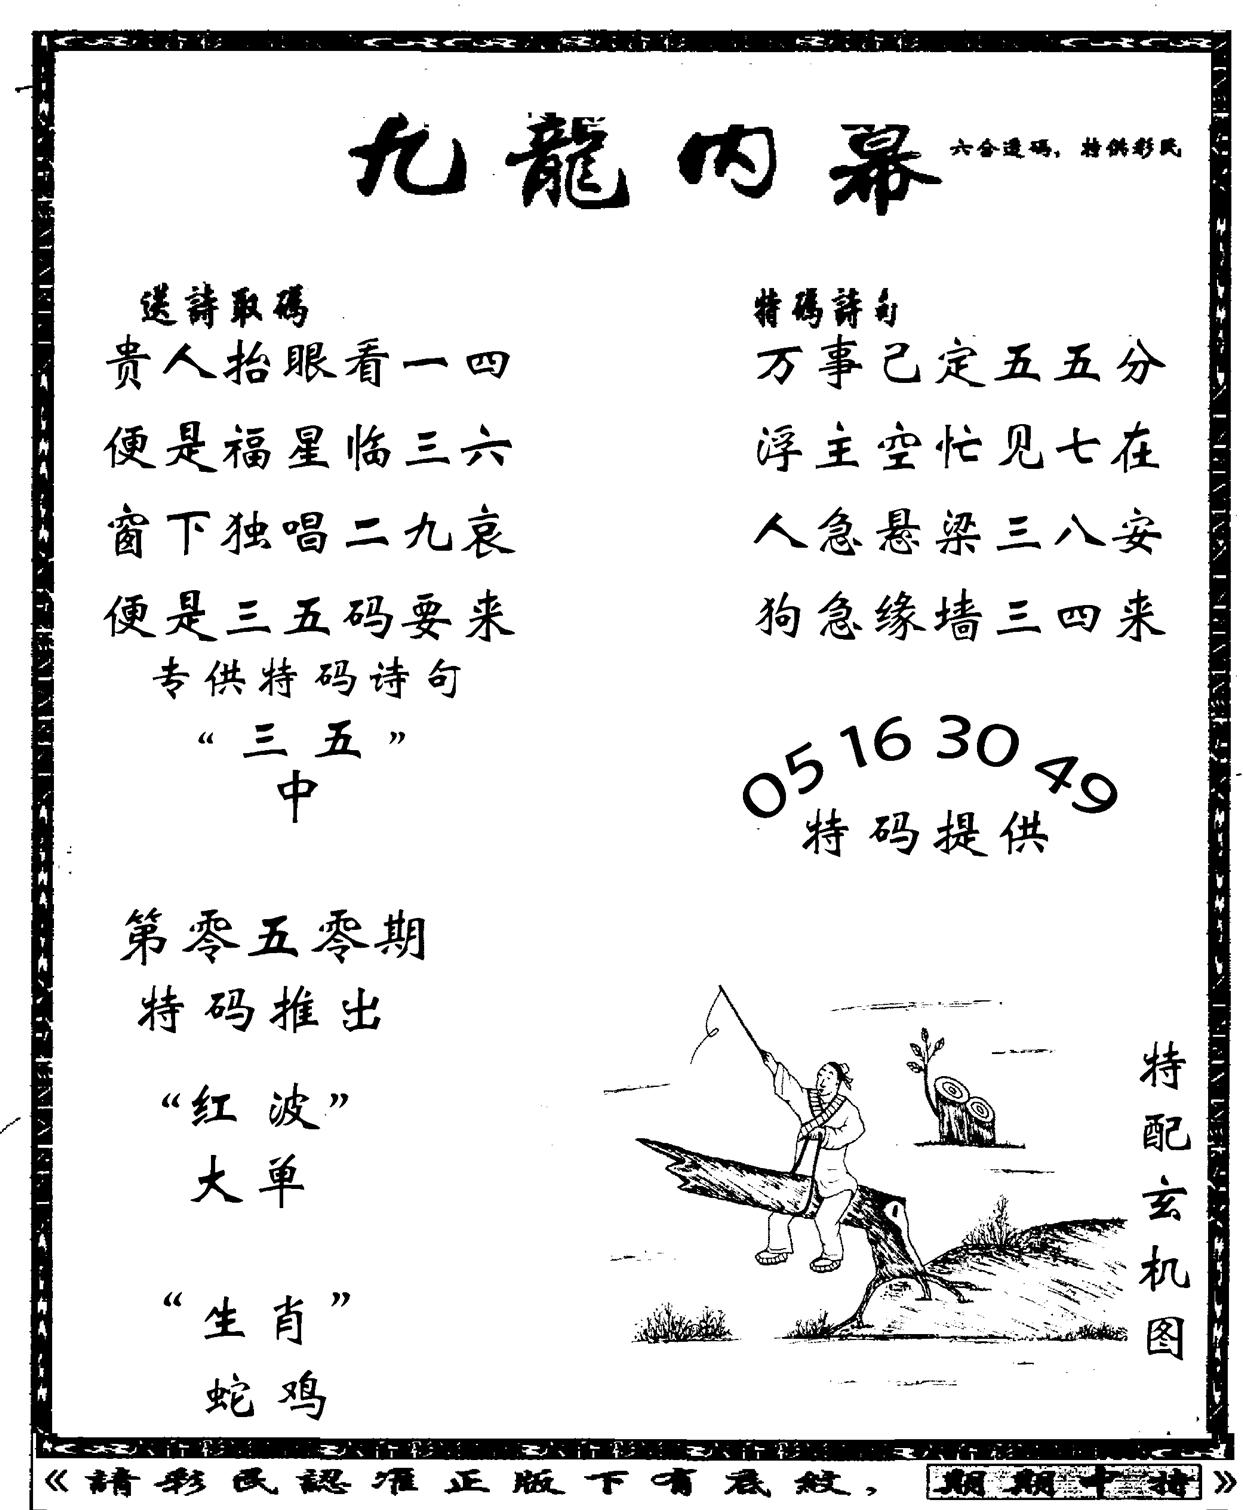 九龍内幕
六合透码，特供彩民
送詩取碼
贵人抬眼看一四
便是福星临三六
窗下独唱二九哀
便是三五码要来
专供特码诗句
“三五”
中
特碼詩句
万事己定五五分
浮主空忙见七在
人急悬梁三八安
狗急缘墙三四来
05 16 30 49
特码提供
第零五零期
特码推出
“红波”
大单
“生肖”
蛇鸡
特配玄机图
《請彩民認准正版下有底紋，期期中特》